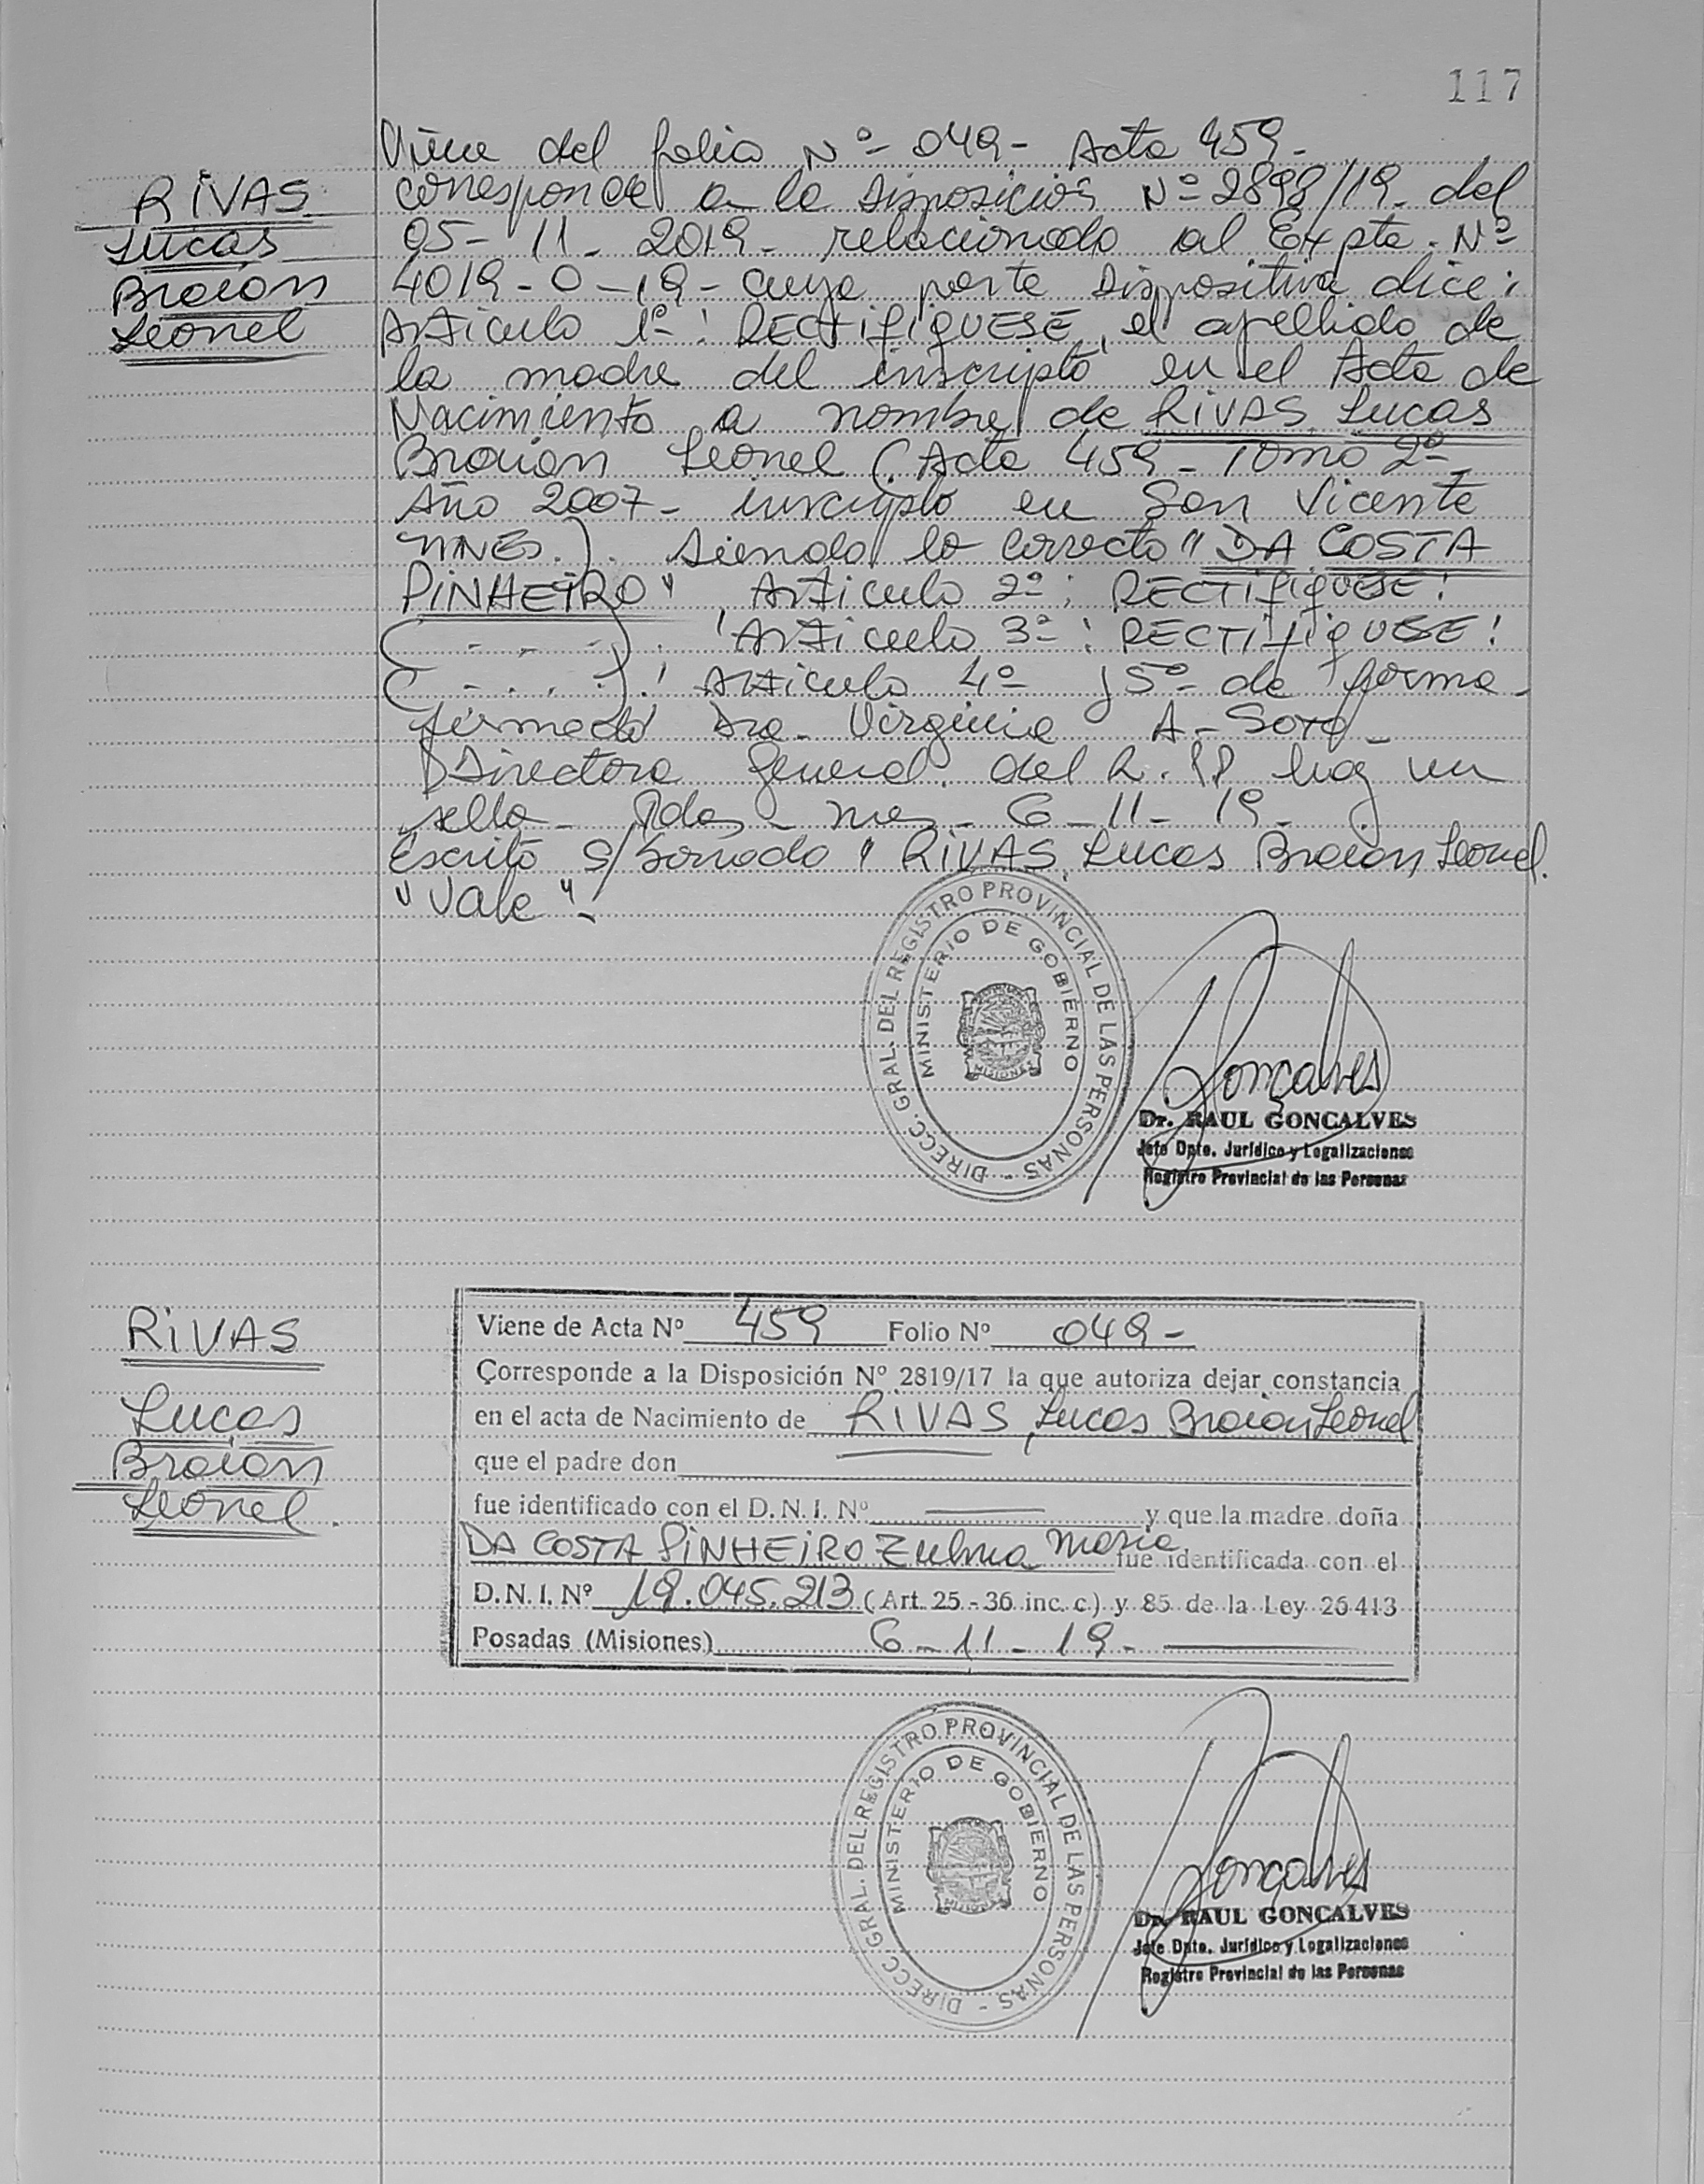 117
Viene del folio Nº 049 - Acta 459 -
RIVAS
Lucas
Braian
Leonel
corresponde a la Disposición Nº 2898/19 - del
05 - 11 - 2019 - relacionado al Expte. Nº
4019 - O - 19 - cuya parte Dispositiva dice:
Articulo 1º: RECTIFIQUESE, el apellido de
la madre del inscripto en el Acta de
Nacimiento a nombre de RIVAS, Lucas
Braian Leonel (Acta 459 - Tomo 2º -
Año 2007 - inscripto en San Vicente
MNES.). Siendo lo correcto "DA COSTA
PINHEIRO", Articulo 2º: RECTIFIQUESE!
(- - -). ! Articulo 3º: RECTIFIQUESE!
(- . . .).! Articulo 4º y 5º de forma -
firmado Dra. Virginia A. Soto -
Directora General del R. PP hay un
sello - Pdas - Mnes - 6 - 11 - 19 -
Escrito s/borrado "RIVAS, Lucas Braian Leonel.
"Vale" -
DIRECC. GRAL. DEL REGISTRO PROVINCIAL DE LAS PERSONAS -
MINISTERIO DE GOBIERNO
MISIONES
Gonçalves
Dr. RAUL GONCALVES
Jefe Dpto. Jurídico y Legalizaciones
Registro Provincial de las Personas
RIVAS
Lucas
Braian
Leonel.
Viene de Acta Nº 459 Folio Nº 049 -
Corresponde a la Disposición Nº 2819/17 la que autoriza dejar constancia
en el acta de Nacimiento de RIVAS, Lucas Braian Leonel
que el padre don
fue identificado con el D. N. I. Nº y que la madre doña
DA COSTA PINHEIRO Zulma Maria fue identificada con el
D. N. I. Nº 19.045.213 (Art. 25 - 36 inc. c) y 85 de la Ley 26413
Posadas (Misiones) 6 - 11 - 19 -
DIRECC. GRAL. DEL REGISTRO PROVINCIAL DE LAS PERSONAS -
MINISTERIO DE GOBIERNO
MISIONES
Gonçalves
Dr. RAUL GONCALVES
Jefe Dpto. Jurídico y Legalizaciones
Registro Provincial de las Personas